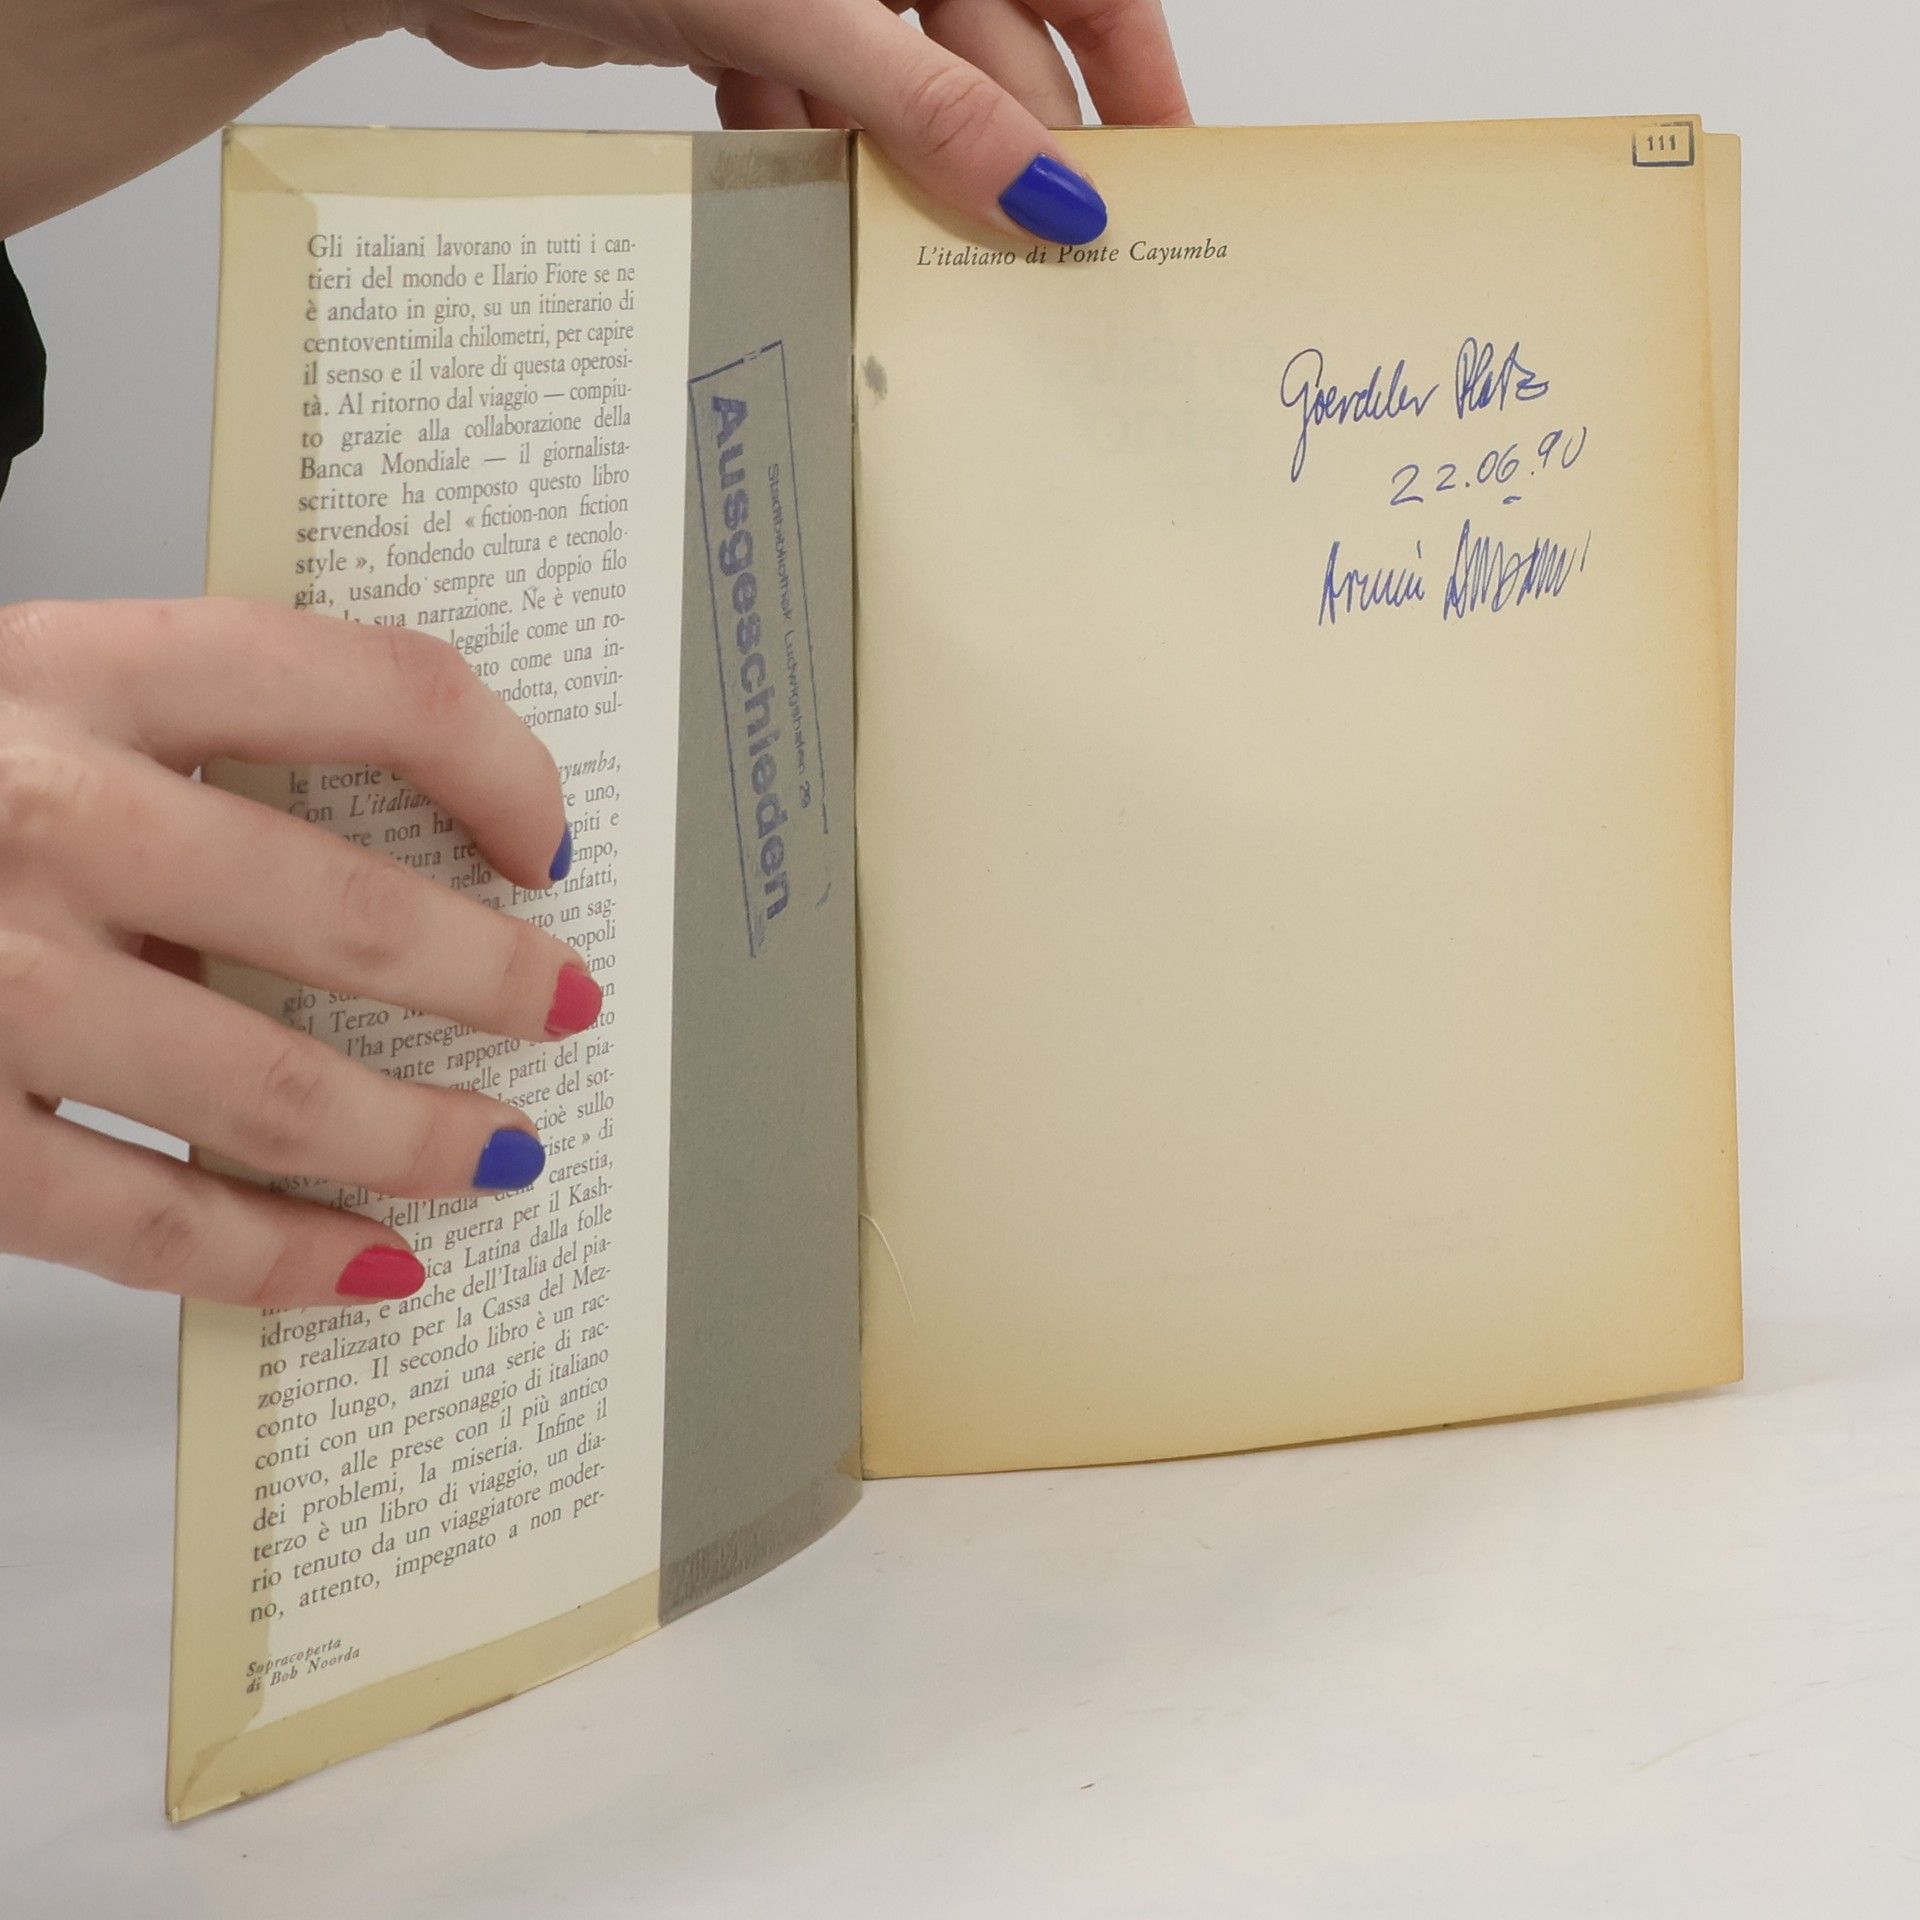 Gli italiani lavorano in tutti i can-
tieri del mondo e Ilario Fiore se ne
è andato in giro, su un itinerario di
centoventimila chilometri, per capire
il senso e il valore di questa operosi-
tà. Al ritorno dal viaggio — compiu-
to grazie alla collaborazione della
Banca Mondiale — il giornalista-
scrittore ha composto questo libro
servendosi del « fiction-non fiction
style », fondendo cultura e tecnolo-
gia, usando sempre un doppio filo
sua narrazione. Ne è venuto
leggibile come un ro-
ato come una in-
ndotta, convin-
giornato sul-
le teorie
Con L'italian yumba,
re non ha re uno,
ttura tre epiti e
nello empo,
na. Fiore, infatti,
tto un sag-
popoli
imo
gio su un
el Terzo M ato
l'ha persegui
pante rapporto
quelle parti del pia-
essere del sot-
cioè sullo
riste » di
tosvi carestia,
dell'
dell'India della
in guerra per il Kash-
ica Latina dalla folle
idrografia, e anche dell'Italia del pia-
no realizzato per la Cassa del Mez-
zogiorno. Il secondo libro è un rac-
conto lungo, anzi una serie di rac-
conti con un personaggio di italiano
nuovo, alle prese con il più antico
dei problemi, la miseria. Infine il
terzo è un libro di viaggio, un dia-
rio tenuto da un viaggiatore moder-
no, attento, impegnato a non per-
Sopracoperta
di Bob Noorda
Stadtbibliothek Ludwigshafen 29
Ausgeschieden
111
L'italiano di Ponte Cayumba
Goerdeler Platz
22.06.90
Armin